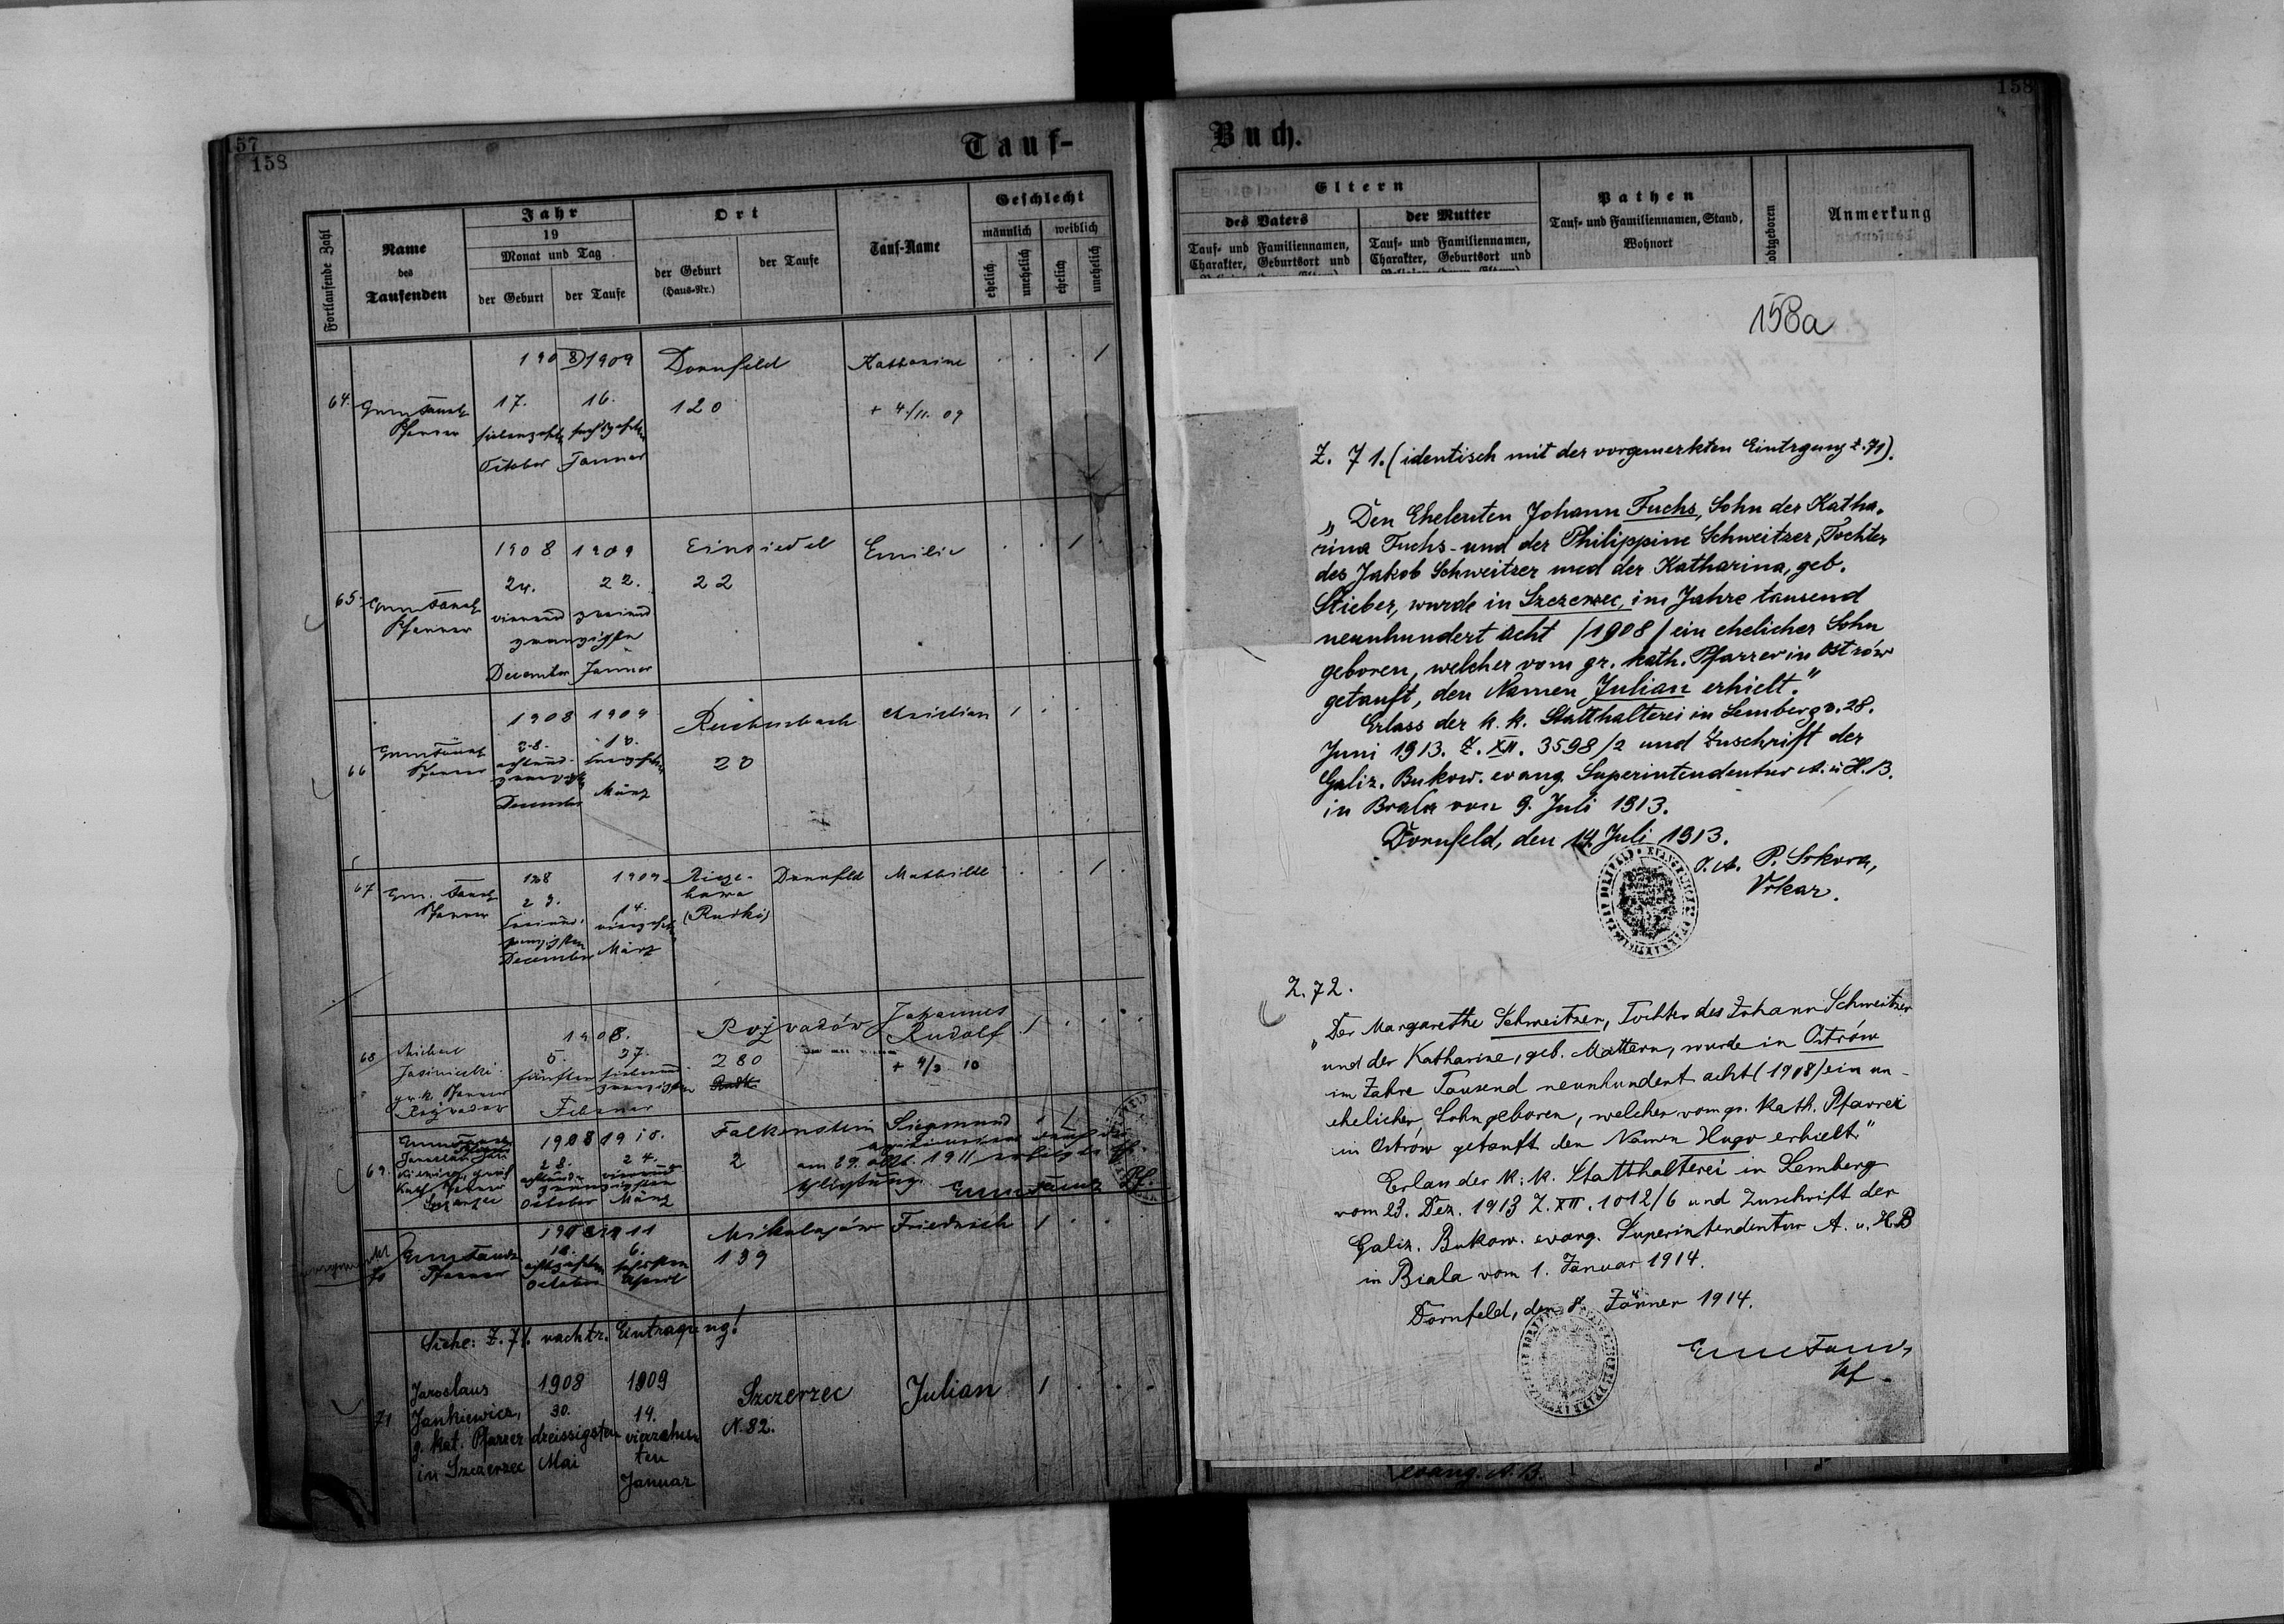 157
158
Tauf-
Fortlaufende Zahl
Name
des
Taufenden
Jahr
19
Monat und Tag
der Geburt
der Taufe
Ort
der Geburt
(Haus-Nr.)
der Taufe
Tauf-Name
Geschlecht
männlich
weiblich
ehelich
unehelich
ehelich
unehelich
64.
Pfarrer
1908 1909
17.
16.
siebenzehn
October Januar
Dornfeld
120
Katharine
+ 4/11. 09
65.
Pfarrer
1908 1909
24.
22.
vierund zweiund
zwanzigsten
December Januar
Einsiedel
22
Emilie
66
Pfarrer
1908 1909
28.
December
März
Reichenbach
20
Christian
67
Pfarrer
1908
1909
14.
December März
(Rudki)
Dornfeld
Mathilde
68
Michael
Jasinicki
gr. k. Pfarrer
Rozwadow
1908.
5.
27.
fünften
Februar
Rozwadów
280
Johannes
Rudolf
+ 4/3 10
69.
1908 1910.
28.
24.
zwanzigsten
October März
Falkenstein
2
Siegmund
am 29. 1911 erfolgte
70
Pfarrer
1908 1911
18.
6.
October April
Mikolajów
139
Friedrich
Siehe: Z. 71. nachtr. Eintragung!
71
Jaroslaus
Jankiewicz,
g. kat. Pfarrer
in Szczerzec
1908
30.
dreissigsten
Mai
1909
14.
vierzehn
ten
Januar
Szczerzec
N. 82.
Julian
Buch.
158
Eltern
des Vaters
Tauf- und Familiennamen,
Charakter, Geburtsort und
der Mutter
Tauf- und Familiennamen,
Charakter, Geburtsort und
Pathen
Tauf- und Familiennamen, Stand,
Wohnort
Todtgeboren
Anmerkung
158a
Z. 71. (identisch mit der vorgemerkten Eintrgung Z. 71).
„Den Eheleuten Johann Fuchs, Sohn der Katha-
rina Fuchs - und der Philippine Schweitzer, Tochter
des Jakob Schweitzer und der Katharina, geb.
Stieber, wurde in Szczerzec, im Jahre tausend
neunhundert acht /1908/ ein ehelicher Sohn
geboren, welcher vom gr. kath. Pfarrer in Ostrów
getauft, den Namen Julian erhielt."
Erlass der k. k. Statthalterei in Lemberg v. 28.
Juni 1913. Z. XII. 3598/2 und Zuschrift der
Galiz. Bukow. evang. Superintendentur A. u. H. B.
in Biala von 9. Juli 1913.
Dornfeld, den 14. Juli 1913.
I. A. P. Sokora,
Vikar.
Z. 72.
„Der Margarethe Schweitzer, Tochter des Johann Schweitzer
und der Katharine, geb. Mattern, wurde in Ostrów
im Jahre Tausend neunhundert acht (1908) ein un-
ehelicher, Sohn geboren, welcher vom gr. kath. Pfarrei
in Ostrów getauft den Namen Hugo erhielt."
Erlan der k. k. Statthalterei in Lemberg
vom 23. Dez. 1913 Z. XII. 1012/6 und Zuschrift der
Galiz. Bukow. evang. Superintendentur A. u. H. B
in Biala vom 1. Januar 1914.
Dornfeld, den 8. Jänner 1914.
evang. A. B.